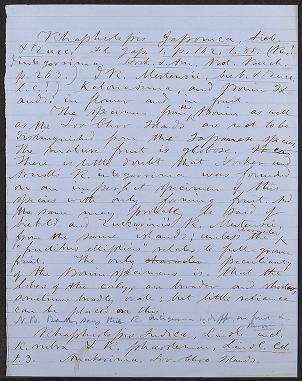 Rhaphiolepis Japonica, Sieb.
& Zucc. Fl. Jap. 1, p. 162, t. 85. (R.
integerrima Hook. & Arn. Bot. Beech.
p. 263.) R. Mertensii, Sieb. & Zucc.
l. c.!) Katonasima, and Bonin
ands; in flower and in fruit.
The specimens from Bonin as well
as the Loo Choo Islands are not to be
distinguished from the Japanese species.
The mature fruit is globose.
There is little doubt that Hooker and
Arnott's R. integerrima was founded
on an imperfect specimen of this
species with only young fruit. And
the same may probably be said of
Siebold and Zuccarini's R. Mertensii,
from the same islands; unless the
"fructibus ellipticis" relate to full grown
fruit. The only peculiarity
of the Bonin specimens is that the
lobes of the calyx are broader and shorter,
sometimes broadly ovate: but little reliance
can be placed on this.
N.B. says this R. integerrima is diff. in fruit &
Rhaphiolepis Indica, Lindl.
R. rubra & R. phaeostemon, Lindl.
t. 3. Katonasima, Loo Choo Islands.